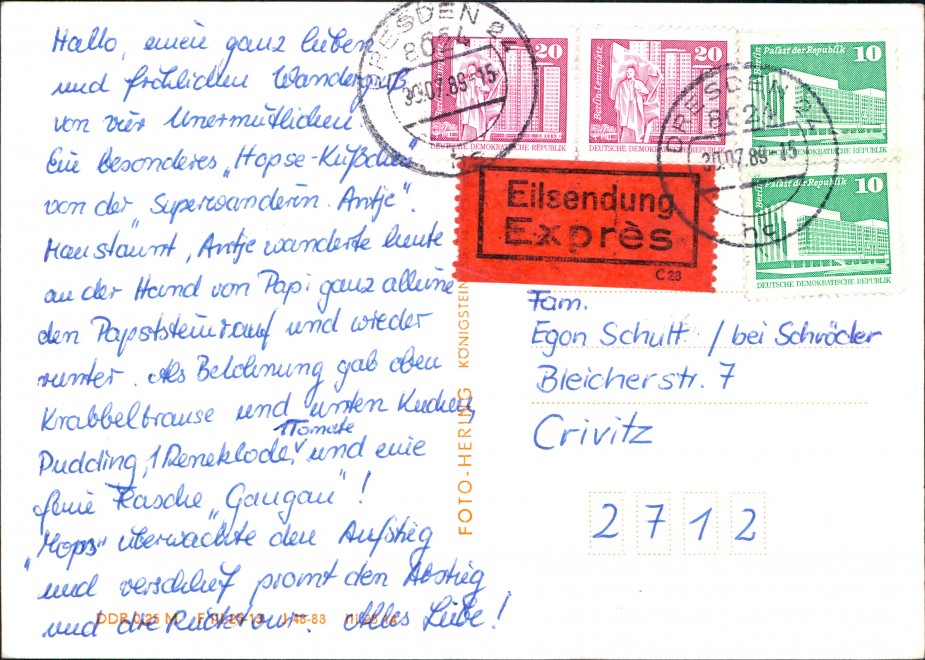 Hallo, einen ganz lieben
und fröhlichen Wandergruß
von vier Unermütlichen
Ein besonderes „Hopse-Küßchen"
von der „Superwanderin Antje".
Man staunt, Antje wanderte heute
an der Hand von Papi ganz alleine
den Papststein rauf und wieder
runter. Als Belohnung gab oben
Krabbelbrause und unten Kuchen,
Pudding, 1 Reneklode, 1 Tomate und eine
feine Flasche „Gaugau"!
„Mops" überwachte den Aufstieg
und verschlief promt den Abstieg
und die Rücktour. Alles Liebe!
DDR 0,25 M
FOTO-HERING KÖNIGSTEIN
DRESDEN 24
8024
30.07.89-15
hc
20
Berlin-Leninplatz
DEUTSCHE DEMOKRATISCHE REPUBLIK
20
Berlin-Leninplatz
DEUTSCHE DEMOKRATISCHE REPUBLIK
Berlin Palast der Republik 10
DEUTSCHE DEMOKRATISCHE REPUBLIK
Berlin Palast der Republik 10
DEUTSCHE DEMOKRATISCHE REPUBLIK
DRESDEN 24
8024
30.07.89-15
hc
Eilsendung
Exprès
C 23
Fam.
Egon Schult / bei Schröder
Bleicherstr. 7
Crivitz
2712